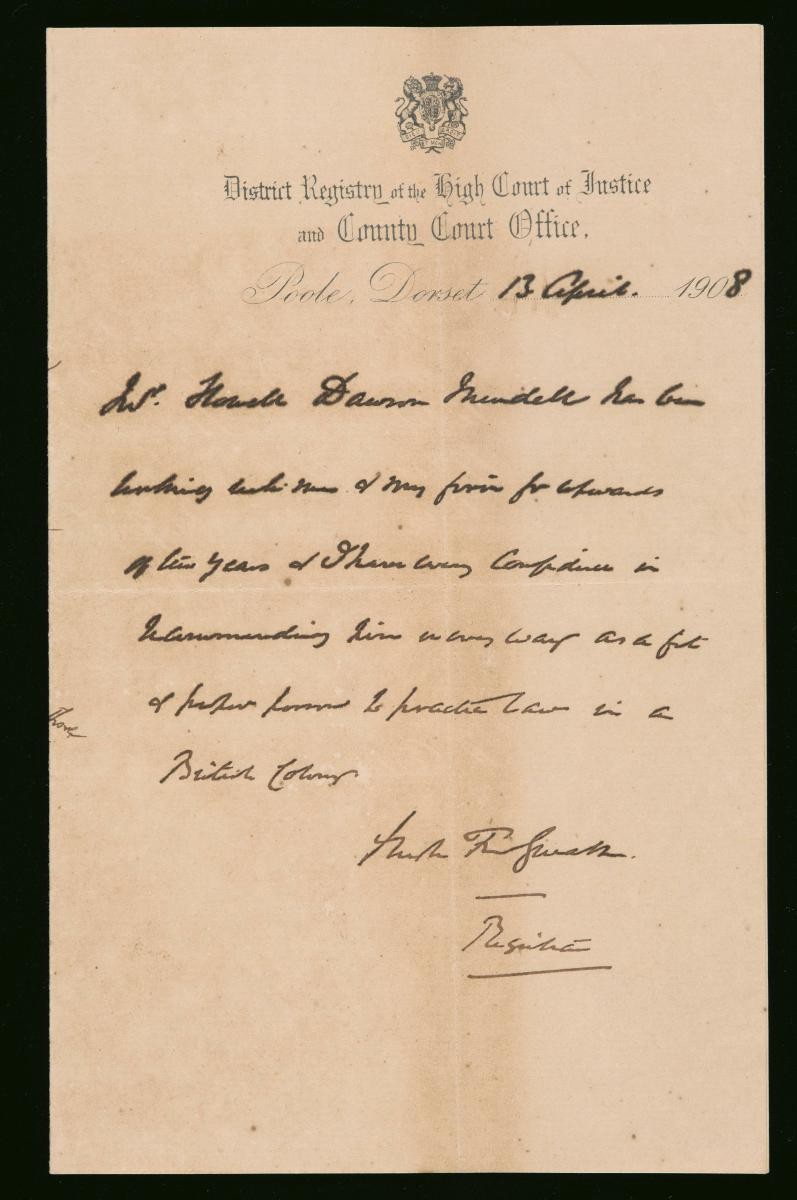 District Registry of the High Court of Justice
and County Court Office.
Poole, Dorset 13 April. 1908
Mr. Howell Dawson Mundell has been
working with me & my firm for upwards
of ten years & I have every confidence in
recommending him in every way as a fit
& proper person to practice law in a
British Colony
Registrar